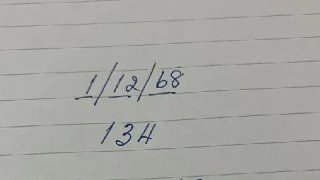 1/12/68
134